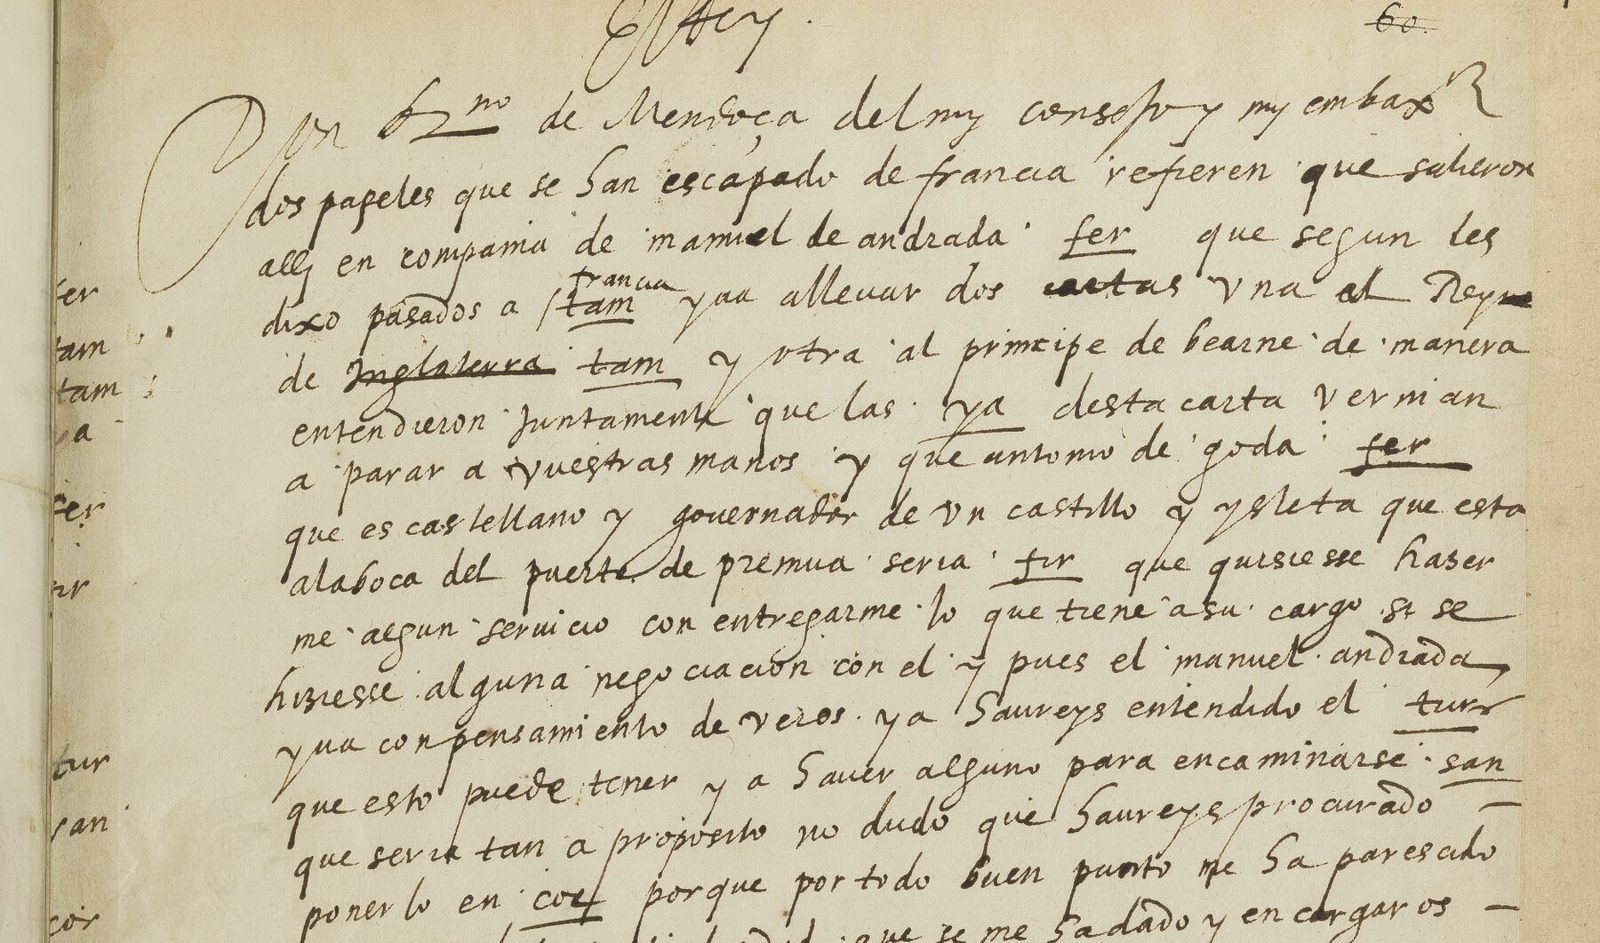 El Rey.
60.
Don bno de Mendoça del my consejo y my embaxor
dos papeles que se han escapado de francia refieren que salieron
ally en compania de manuel de andrada fer que segun les
francia
dixo pasados a tam yua allevar dos cartas vna al Rey
de Inglaterra tam y otra al principe de bearne de manera
entendieron Juntamente que las ya desta carta vernian
a parar a vuestras manos y que antonio de goda fer
que es castellano y governador de vn castillo y ysleta que esta
alaboca del puerto de premua seria fir que quisiesse haser
me algun servicio con entregarme lo que tiene a su cargo si se
hiziesse alguna negociacion con el y pues el manuel andrada
yua con pensamiento de veros ya haureys entendido el turr
que esto puede tener y a haver alguno para encaminarse san
que seria tan a proposito no dudo que haureys procurado
ponerlo en cor porque por todo buen punto me ha parescido
que se me ha dado y encargaros
fer
tam
tam
ya
fer
fir
tur
san
cor